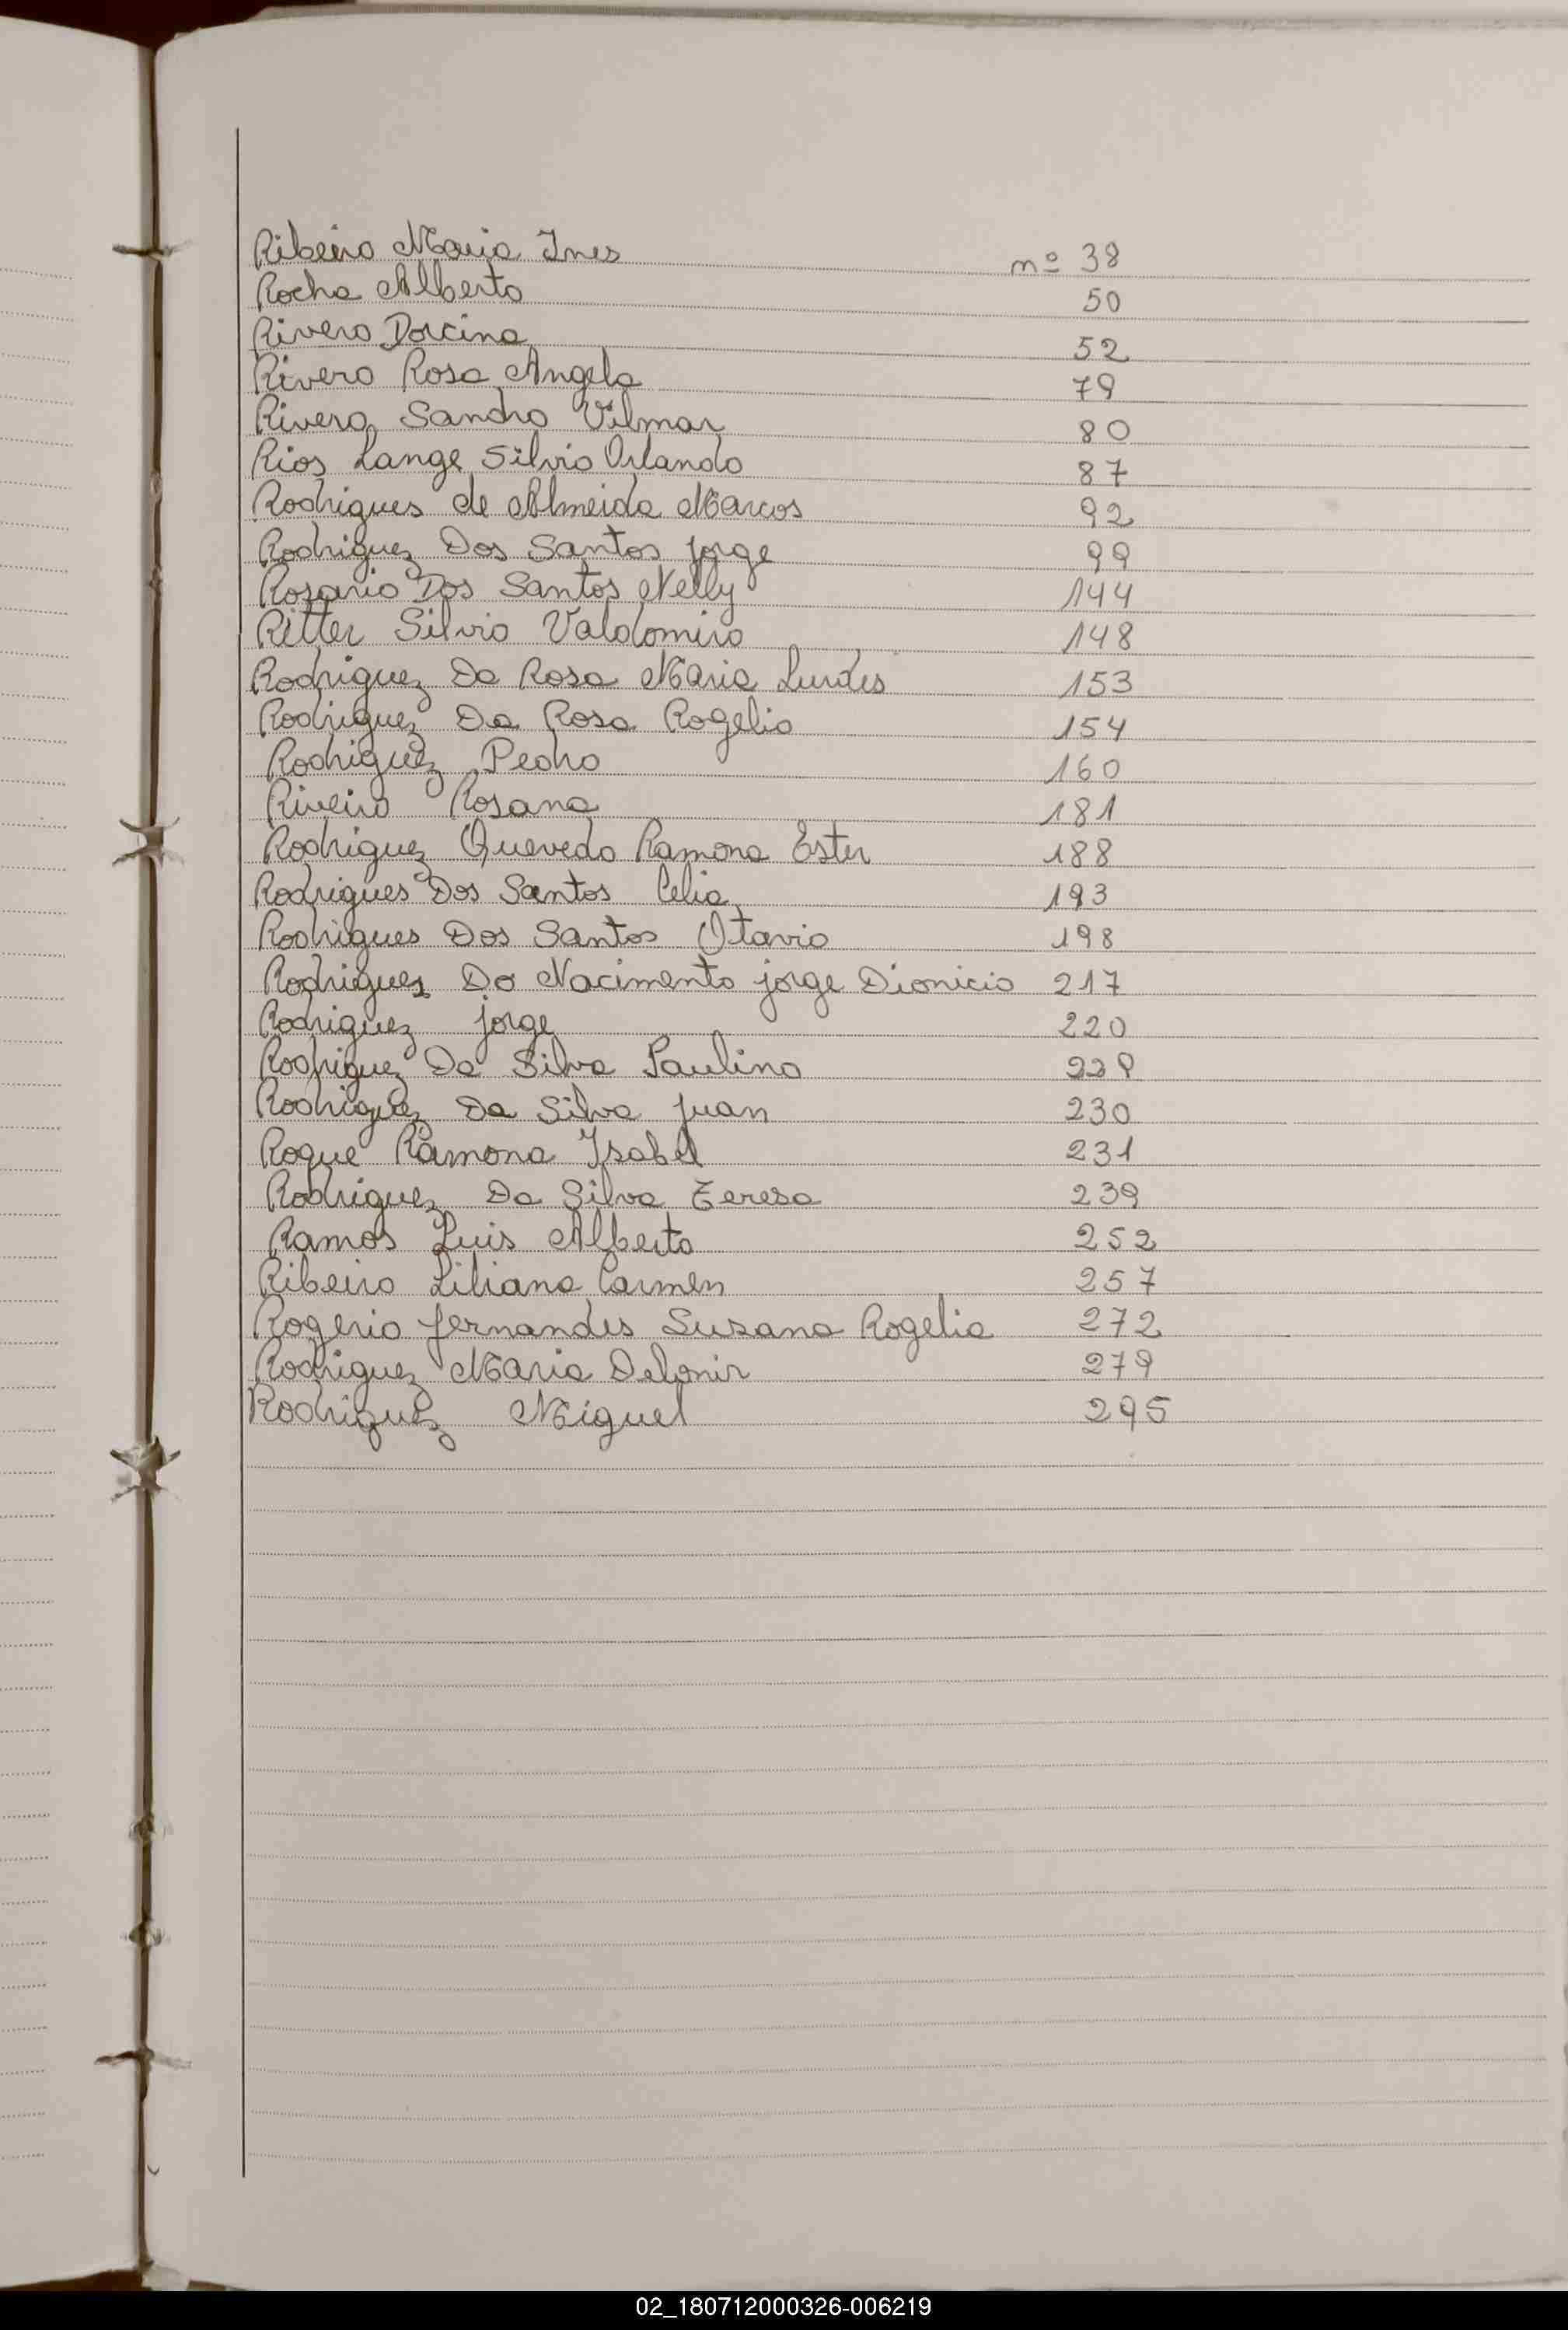 Ribeiro Maria Ines nº 38
Rocha Alberto 50
Rivero Dorcina 52
Rivero Rosa Angela 79
Rivero Sandro Vilmar 80
Rios Lange Silvio Orlando 87
Rodrigues de Almeida Marcos 92
Rodriguez Dos Santos jorge 99
Rosario Dos Santos Nelly 144
Ritter Silvio Valdomiro 148
Rodriguez Da Rosa Maria Lurdes 153
Rodriguez Da Rosa Rogelio 154
Rodriguez Pedro 160
Riveiro Rosana 181
Rodriguez Quevedo Ramona Ester 188
Rodrigues Dos Santos Celia 193
Rodrigues Dos Santos Otavio 198
Rodriguez Do Nacimento jorge Dionicio 217
Rodriguez jorge 220
Rodriguez Da Silva Paulino
Rodriguez Da Silva juan 230
Roque Ramona Isabel 231
Rodriguez Da Silva Teresa 239
Ramos Luis Alberto 252
Ribeiro Liliana Carmen 257
Rogerio fernandes Susana Rogelia 272
Rodriguez Maria Delonir 279
Rodriguez Miguel 295
02_180712000326-006219